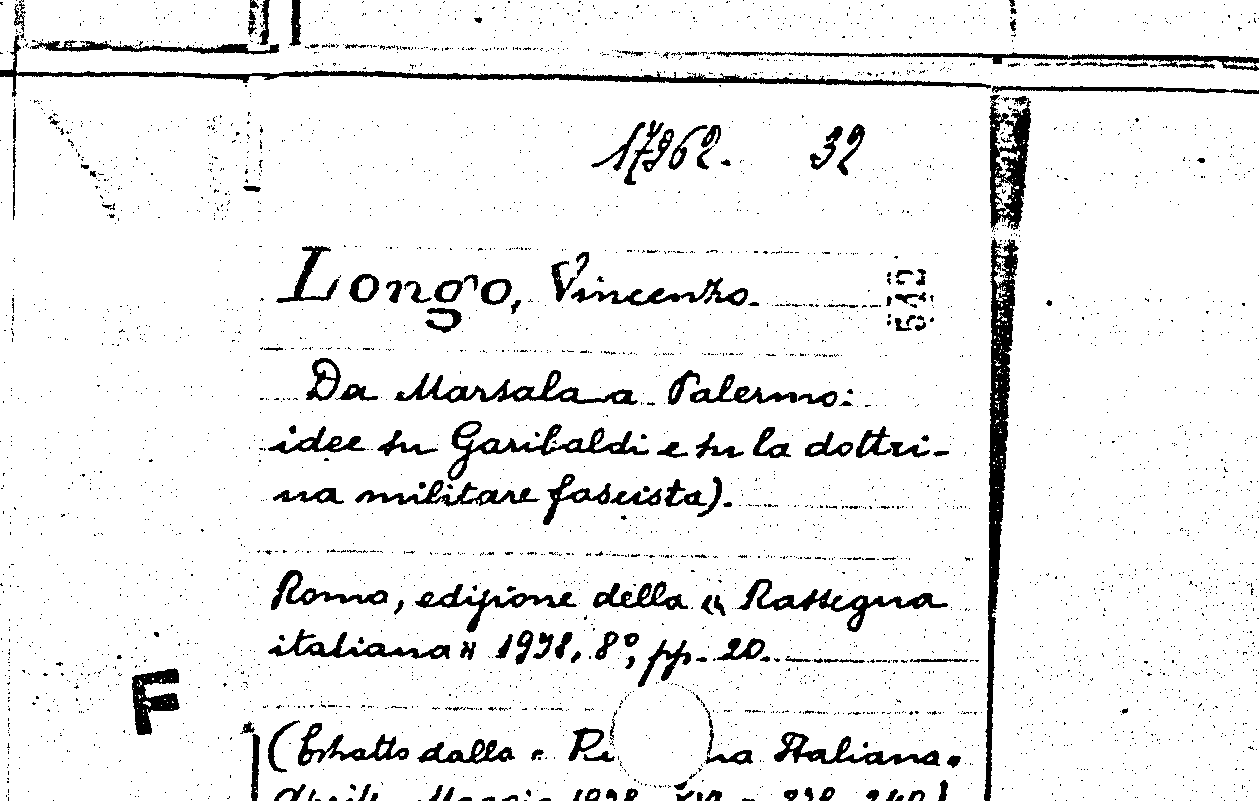 17962. 32
Longo, Vincenzo.
Da Marsala a Palermo:
idee su Garibaldi e su la dottri-
na militare fascista).
Roma, edizione della « Rassegna
italiana » 1938, 8°, pp. 20.
F
(Estratto dalla « na Italiana.
Aprile Maggio 1938